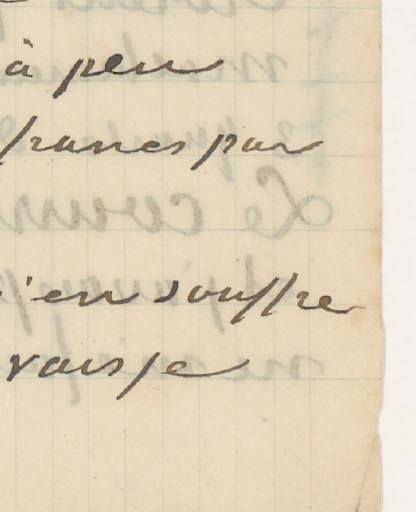 à peu
francs par
j'en souffre
vais je